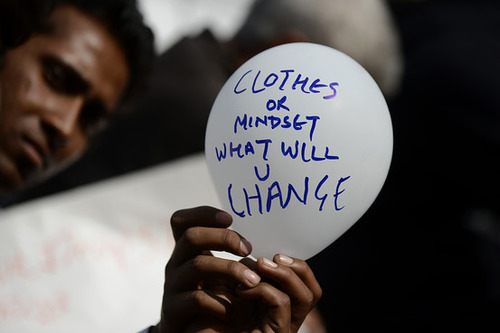 CLOTHES
OR
MINDSET
WHAT WILL
U
CHANGE